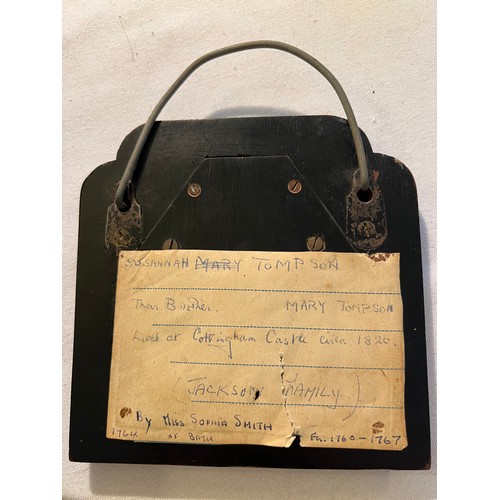 SUSANNAH MARY TOMPSON
Their Brother. MARY TOMPSON
Lived at Cottingham Castle Circa 1820.
(JACKSON FAMILY)
By MISS SOPHIA SMITH
1764 AT BATH Fl. 1760-1767